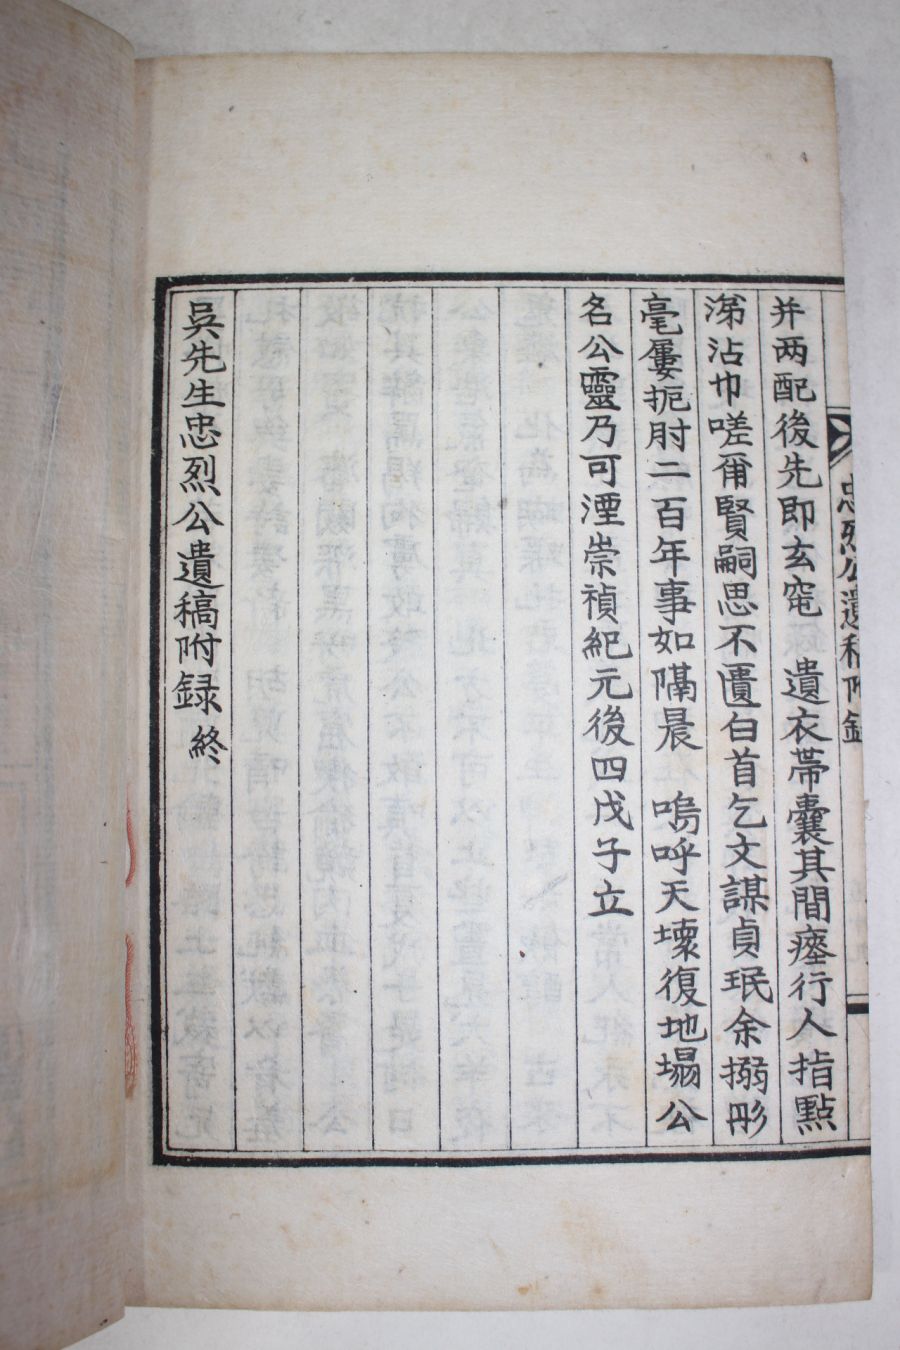 并两配後先即玄窀 遺衣帶囊其間瘞行人指點
涕沾巾嗟爾賢嗣思不匱白首乞文謀貞珉余搦彤
毫屢扼肘二百年事如隔晨 嗚呼天壞復地塌公
名公靈乃可湮崇禎紀元後四戊子立
吳先生忠烈公遺稿附録 終
忠烈公遺稿附録